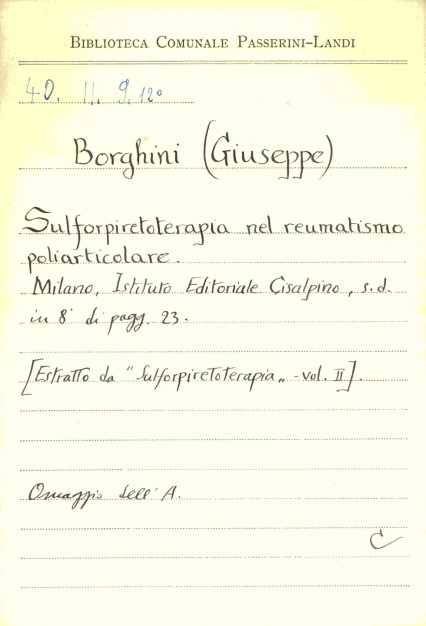 BIBLIOTECA COMUNALE PASSERINI-LANDI
40. II. 9.120
Borghini (Giuseppe)
Sulforpiretoterapia nel reumatismo
poliarticolare.
Milano, Istituto Editoriale Cisalpino, s.d.
in 8° di pagg. 23.
[Estratto da "Sulforpiretoterapia„ - vol. II].
Omaggio dell'A.
C